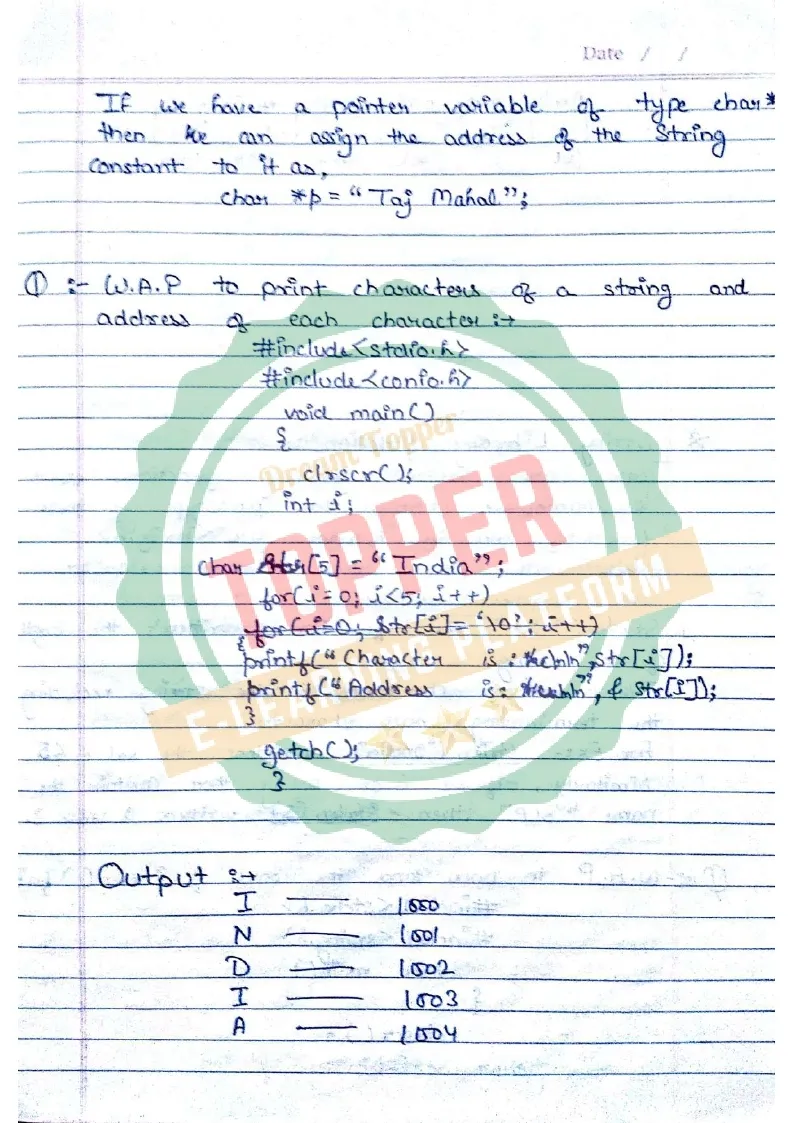 Date / /
If we have a pointer variable of type char*
then we can assign the address of the String
constant to it as,
char *p = "Taj Mahal";
① :- W.A.P to print characters of a string and
address of each character :→
#include<stdio.h>
#include<conio.h>
void main()
{
clrscr();
int i;
char Str[5] = "India";
for(i=0; i<5; i++)
for(i=0; Str[i]= '\0'; i++)
{
printf("Character is : %c\n\n", str[i]);
printf("Address is: \n\n", & str[i]);
}
getch();
}
Output :→
I — 1000
N — 1001
D — 1002
I — 1003
A — 1004
Dream Topper
TOPPER
E-LEARNING PLATFORM